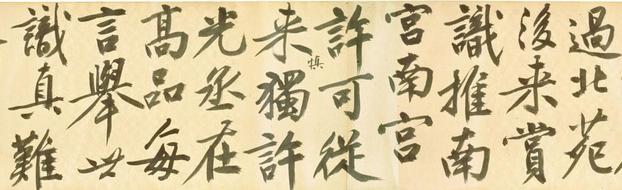 過北苑
後来賞
識推南
宮南宮
慎
許可從
来獨許
光丞在
高品每
言舉世
識真難